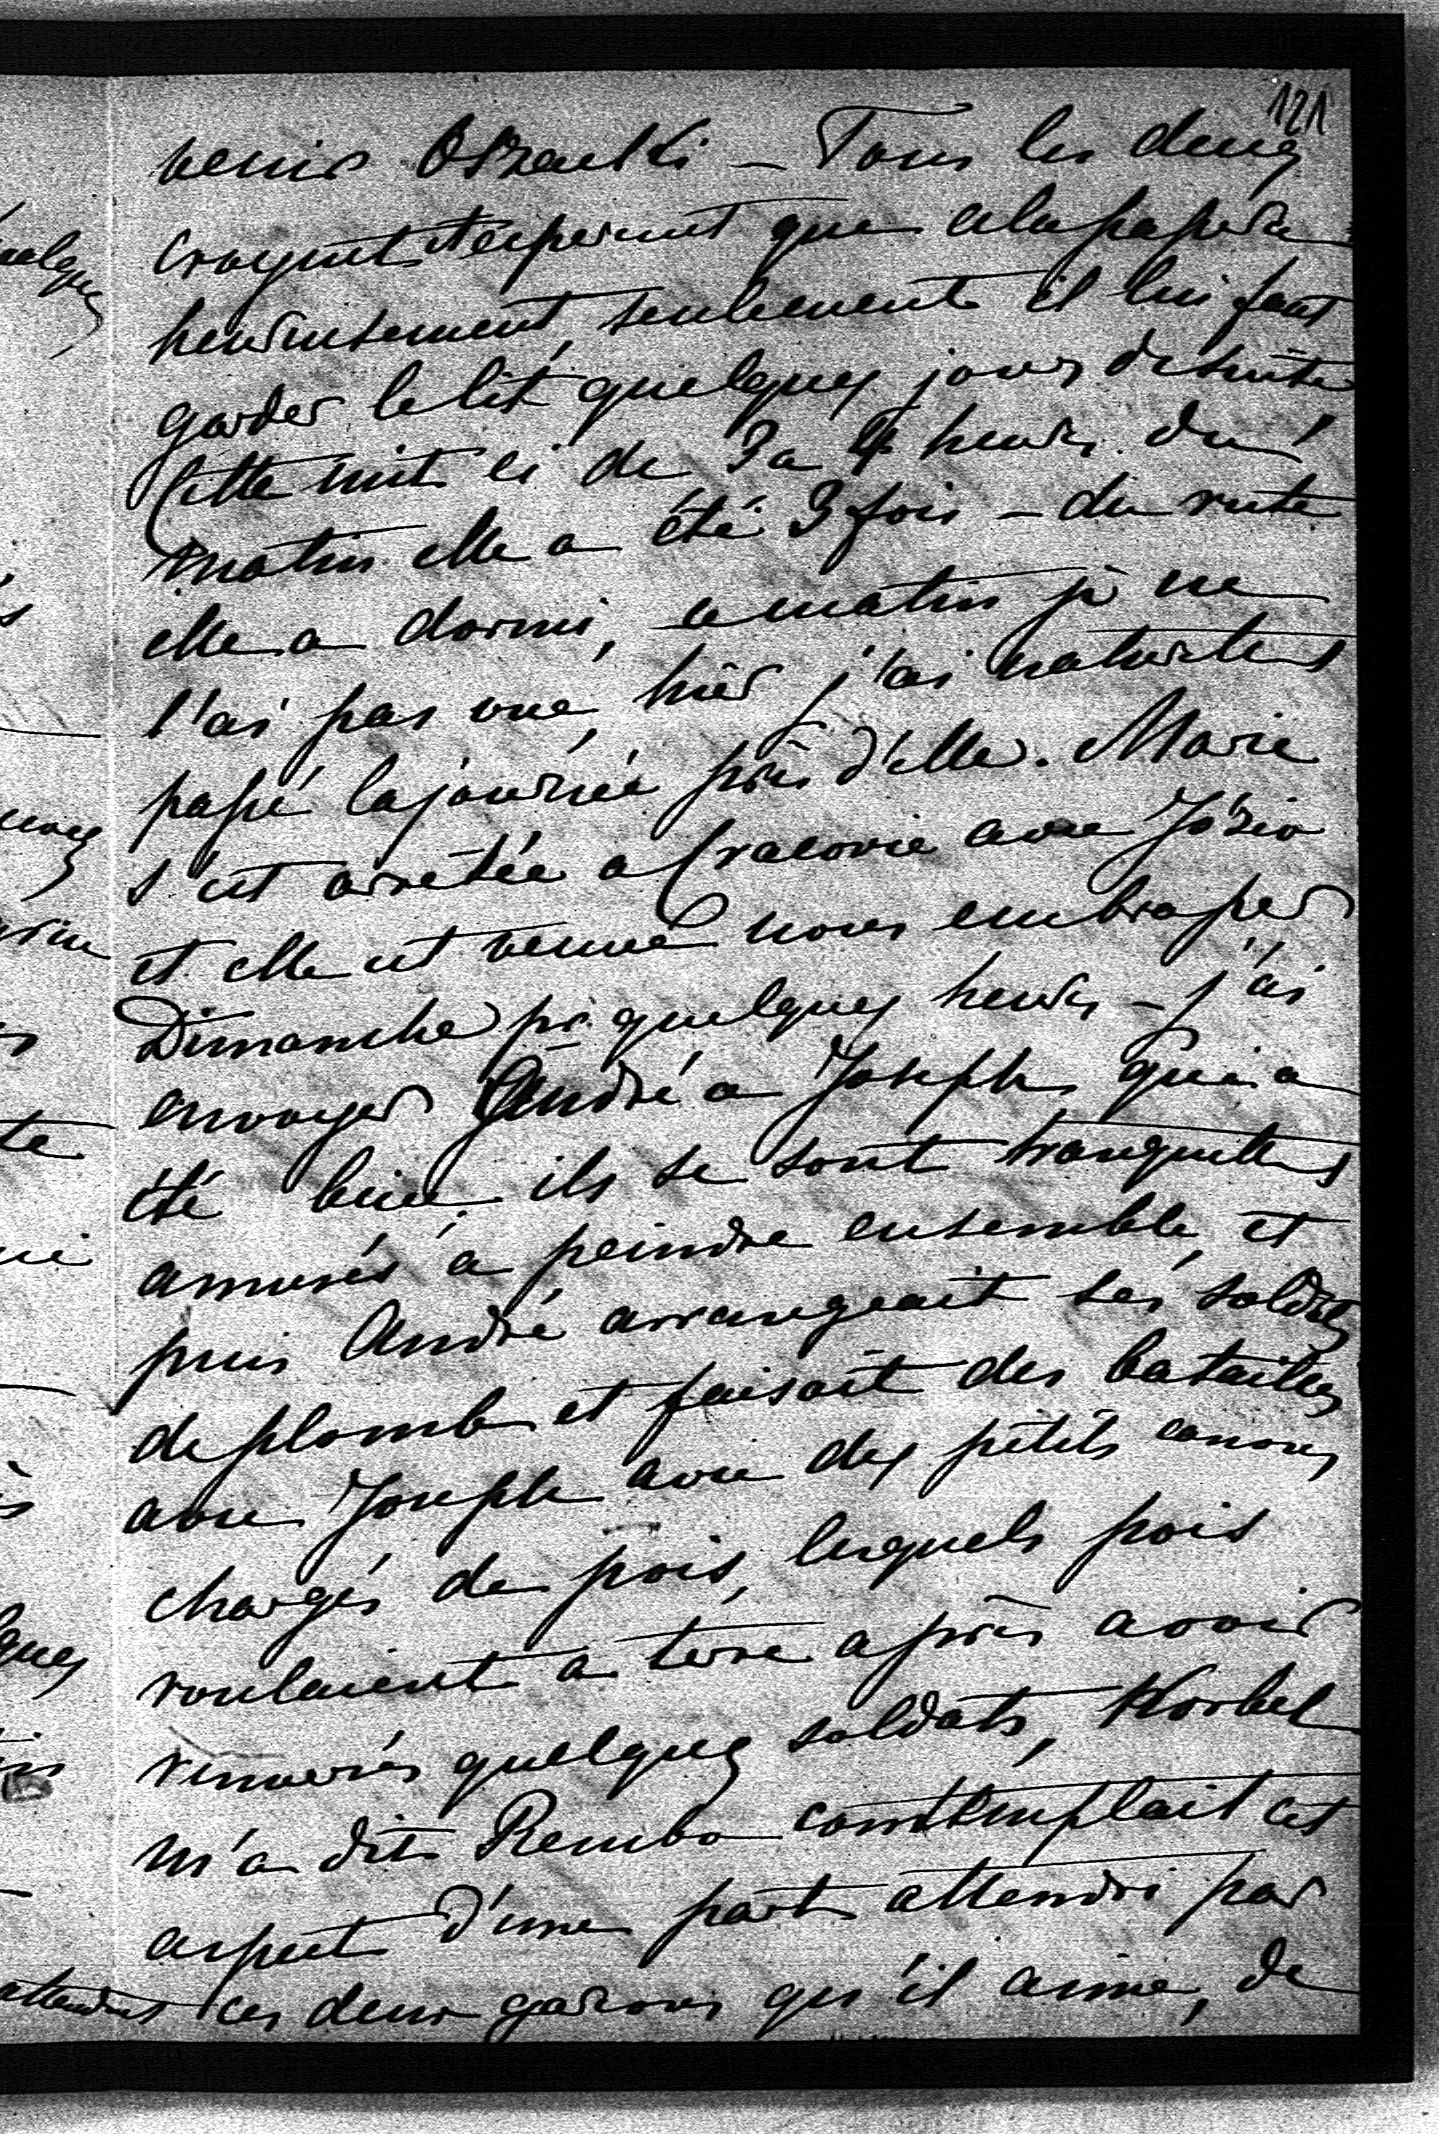 121
venir Obzeutki – Tous les deux
croyent et espèrent que cela passera
heureusement, seulement il lui faut
garder le lit quelques jours de suite
Cette nuit ci de 3 a 4 heures du
matin elle a été 3 fois – du reste
elle a dormi, ce matin je ne
l'ai pas vue, hier j'ai naturelent
passé la journée près d'elle. Marie
s'est arretée a Cracovie avec Józio
et elle est venue nous embrasser
Dimanche pr quelques heures – j'ai
envoyer André a Joseph qui a
été bien, ils se sont tranquillent
amusés a peindre ensemble, et
puis André arrangeait ses soldts
de plomb et faisait des batailles
avec Joseph avec des petits canons
chargés de pois, lesquels pois
roulaient a terre après avoir
renversés quelques soldats, Korbel
m'a dit Rembo contemplait cet
aspect d'une part attendri par
ces deux garçons qu'il aime, de